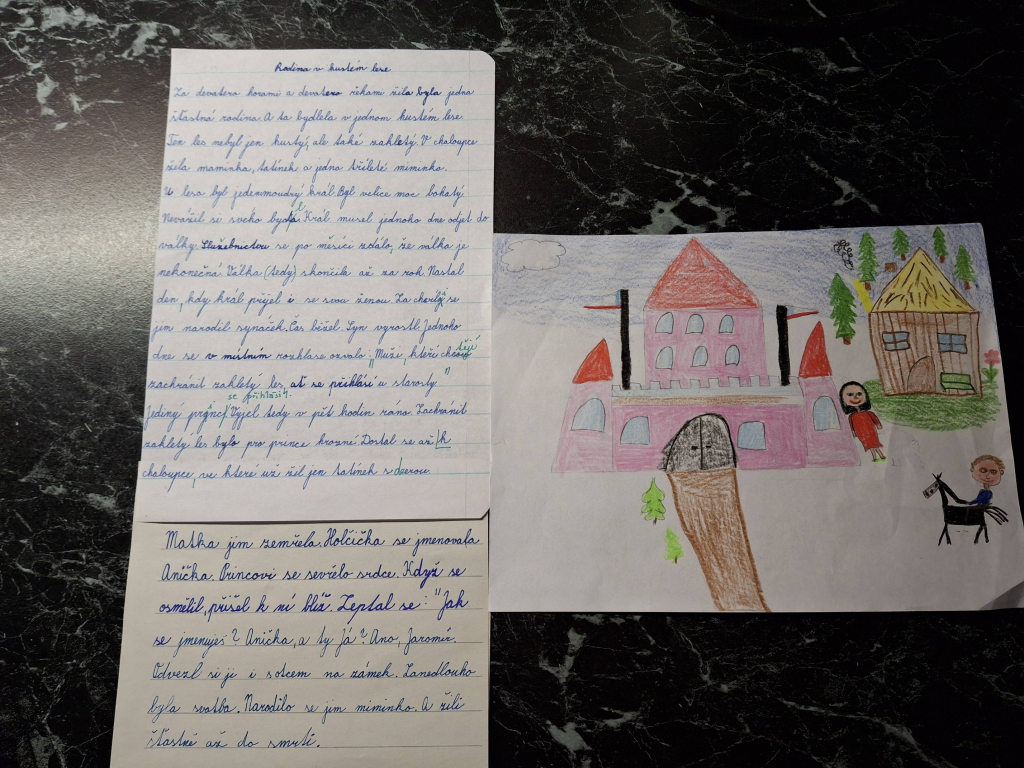 Rodina v hustém lese
Za devatero horami a devatero řekami žila byla jedna
šťastná rodina. A ta bydlela v jednom hustém lese.
Ten les nebyl jen hustý, ale také zakletý. V chaloupce
žila maminka, tatínek a jedno tříleté miminko.
U lesa byl jedenmoudrý král. Byl velice moc bohatý.
Nevážil si svého Král musel jednoho dne odjet do
války. Služebnictvu se po měsíci zdálo, že válka je
nekonečná. Válka (tedy) skončila až za rok. Nastal
den, kdy král přijel i se svou ženou. Za chvíly se
jim narodil synáček. Čas běžel. Syn vyrostl. Jednoho
dne se v místním rozhlase ozvalo: "Muži, kteří chtějí
zachránit zakletý les, ať se přihlásí u starosty"
se přihlásil.
Jediný princ Vyjel tedy v pět hodin ráno. Zachránit
zakletý les bylo pro prince hrozné. Dostal se až k
chaloupce, ve které už žil jen tatínek s dcerou.
Matka jim zemřela. Holčička se jmenovala
Anička. Princovi se sevřelo srdce. Když se
osmělil, přišel k ní blíž. Zeptal se: "Jak
se jmenuješ? Anička, a ty Já? Ano, Jaromír.
Odvezl si ji i sotcem na zámek. Zanedlouho
byla svatba. Narodilo se jim miminko. A žili
šťastně až do smrti.